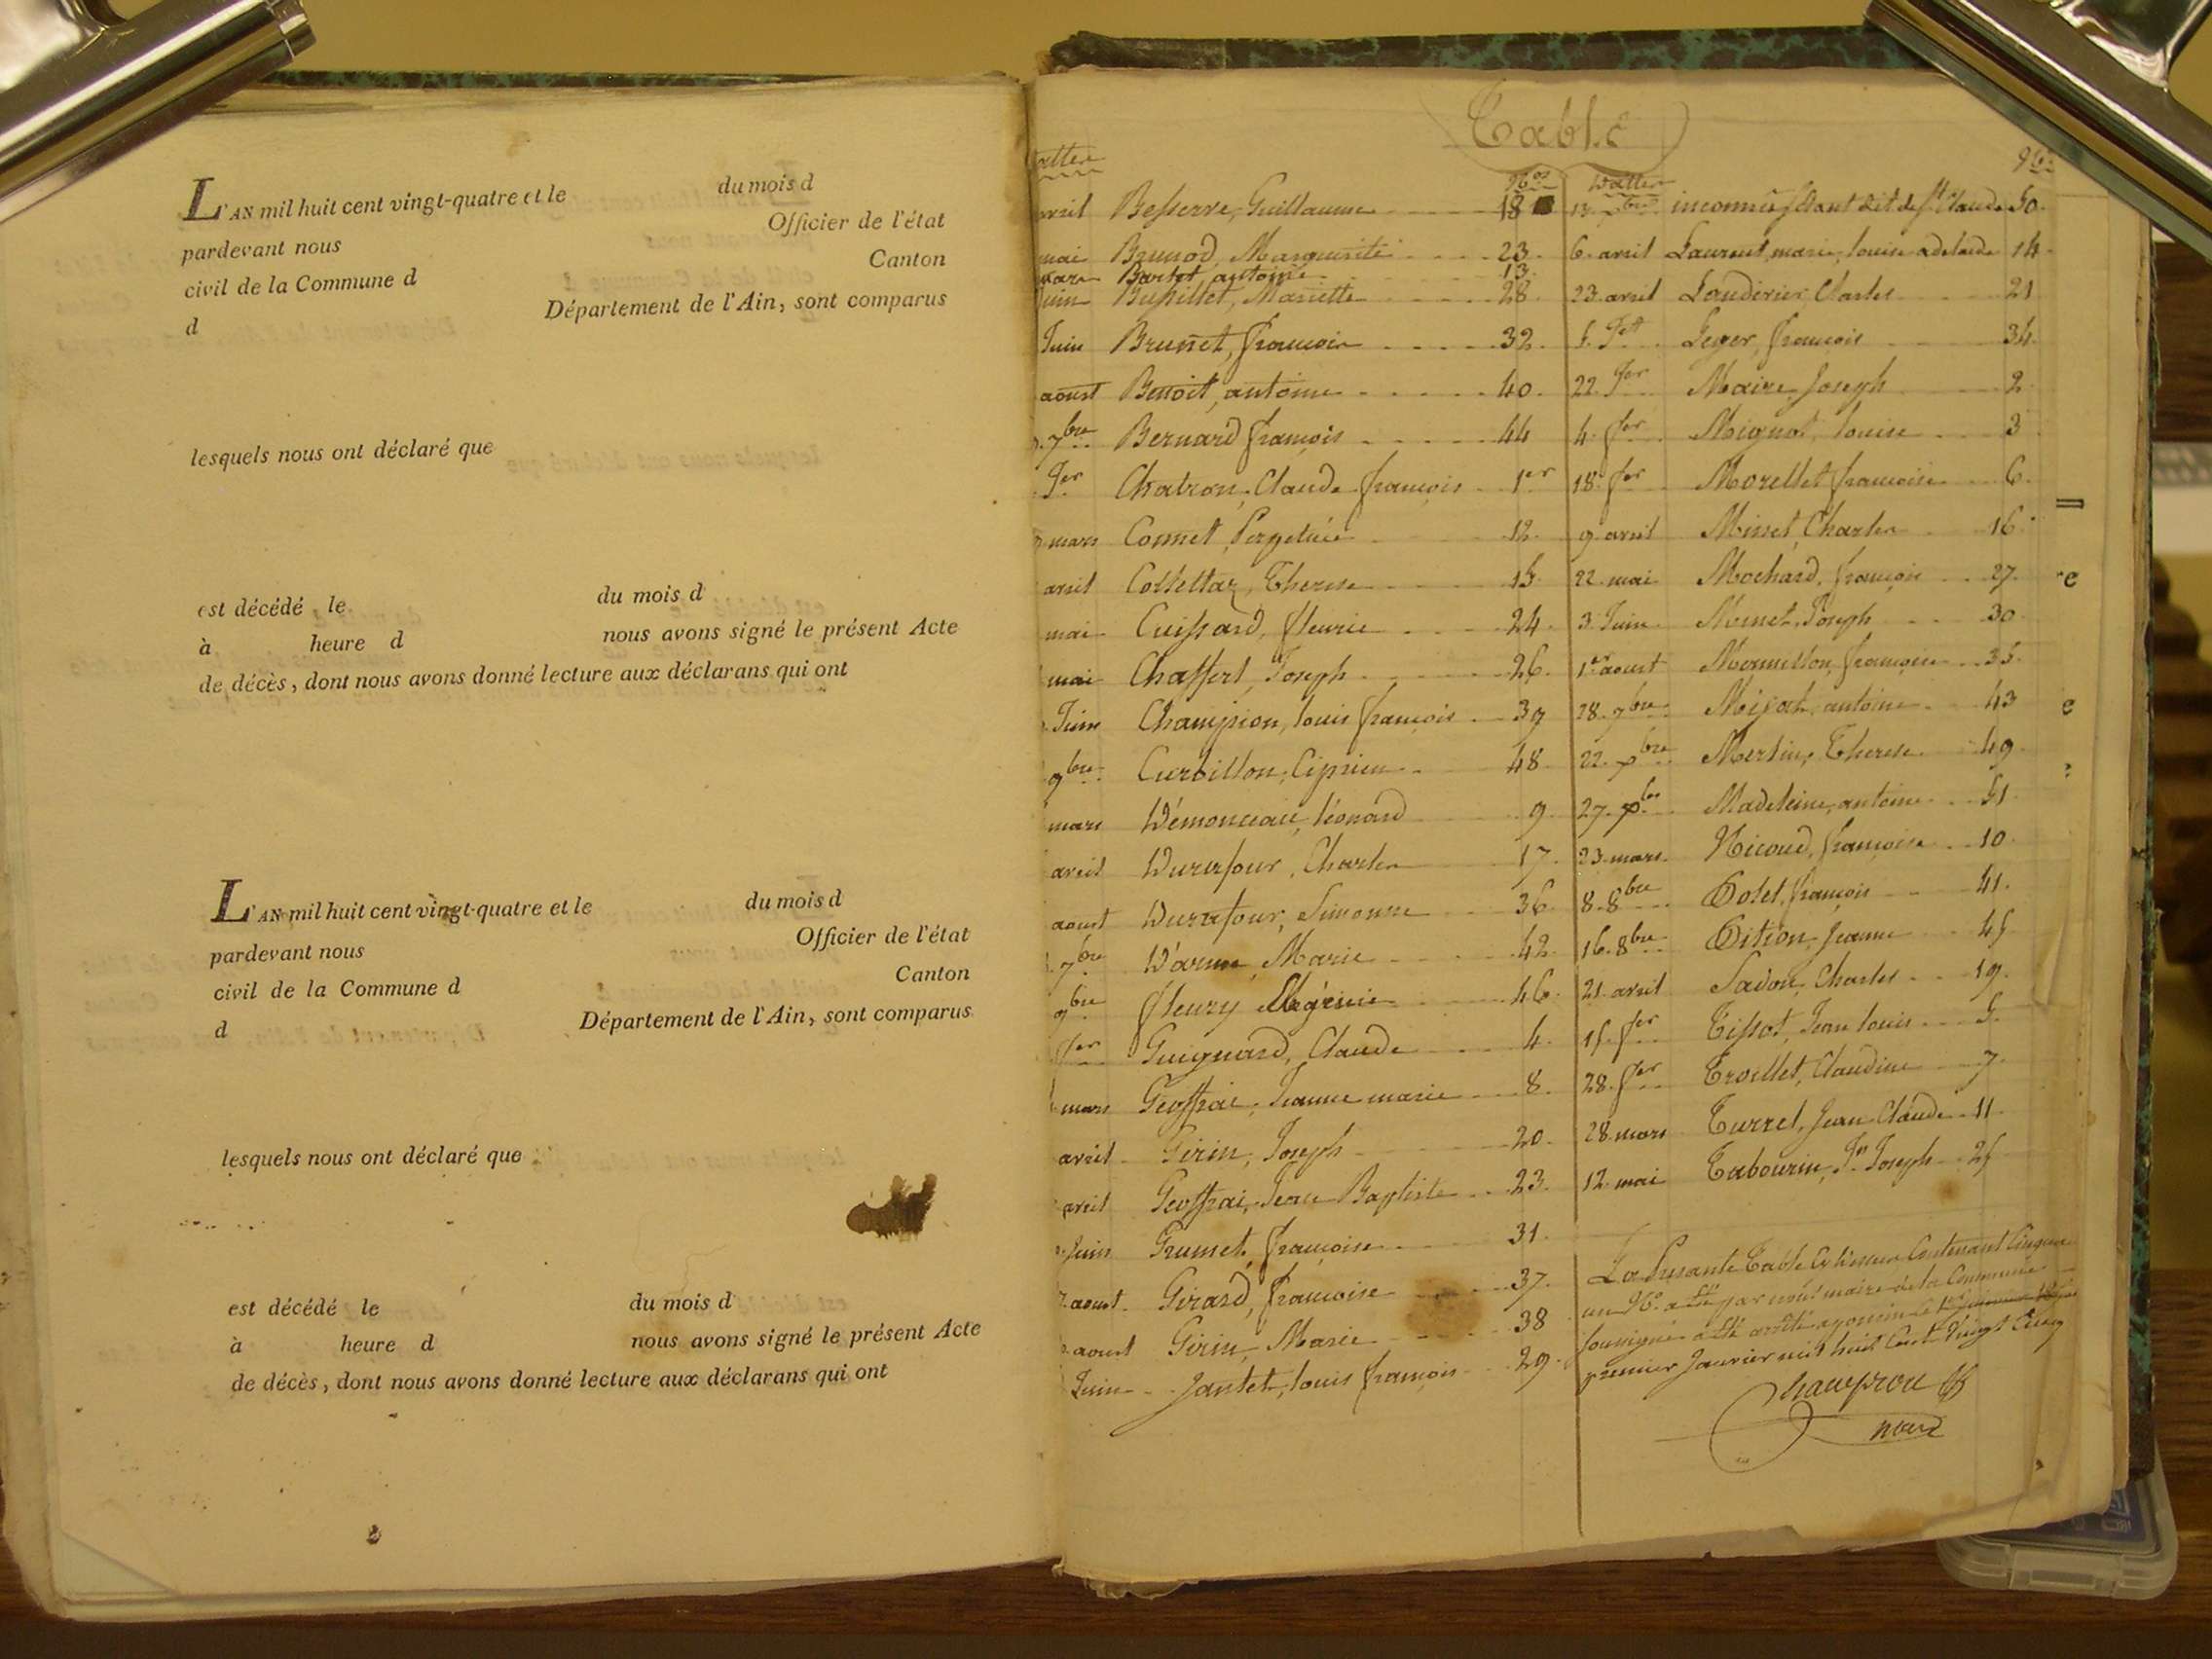 L'AN mil huit cent vingt-quatre et le du mois d
pardevant nous Officier de l'état
civil de la Commune d Canton
d Département de l'Ain, sont comparus
lesquels nous ont déclaré que
est décédé le du mois d
à heure d nous avons signé le présent Acte
de décès, dont nous avons donné lecture aux déclarans qui ont
L'AN mil huit cent vingt-quatre et le du mois d
pardevant nous Officier de l'état
civil de la Commune d Canton
d Département de l'Ain, sont comparus
lesquels nous ont déclaré que
est décédé le du mois d
à heure d nous avons signé le présent Acte
de décès, dont nous avons donné lecture aux déclarans qui ont
Table
Nos
avril Besserre, Guillaume 18
mai Brunod, Marguerite 23.
mars Bartet antoine 13.
Juin Bussillet, Mariette 28.
Juin Brunet, françois 32.
aoust Benoit, antoine 40.
7bre Bernard françois 44
Jer Chatron, Claude françois 1er
mars Connet, Perpetuée 12.
avril Collettaz, Therese 15.
mai Cuissard, fleurie 24.
mai Chaffert, Joseph 26.
Juin Champion, louis françois 39
9bre Curtillon, Ciprien 48.
mars Démonceau, léonard 9.
avril Durafour, Charles 17.
aoust Durafour, Simonne 36.
7bre Darme, Marie 42.
9bre fleury 46.
fer Guignard, Claude 4.
mars Geoffrai, Jeanne marie 8.
avril Girin, Joseph 20.
avril Geoffrai, Jean Baptiste 23.
Juin Grumet, françoise 31.
aoust Girard, françoise 37.
aoust Girin, Marie 38
Juin Jantet, louis françois 29.
Dattes
inconnu dit de St Claude 50.
6. avril Laurent, marie louise adelaide 14.
23. avril Landérier, Charles 21
Leger, françois 34.
22. Jer Maire, Joseph 2.
4. fer Mignot, louise 3
18. fer Morellet françoise 6.
9. avril Missel, Charles 16.
22. mai Mochard, françois 27.
3. Juin Joseph 30.
1er aoust françoise 35.
28. 7bre antoine 43
22. Xbre Merlin, Therese 49.
27. Xbre Madeleine, antoine 51
23. mars Nicoud, françoise 10.
8. 8bre françois 41.
16. 8bre Jeanne 45
21 avril Sadon, Charles 19.
15. fer Tissot, Jean louis 5.
28. fer Troillet, Claudine 7.
28. mars Turrel, Jean Claude 11
12. mai Tabourin, Jn Joseph 25
La Présente Table Contenant Cinquante
un No. a été par nous maire de la Commune
soussigné a été arrêté
premier Janvier mil huit Cent Vingt Cinq